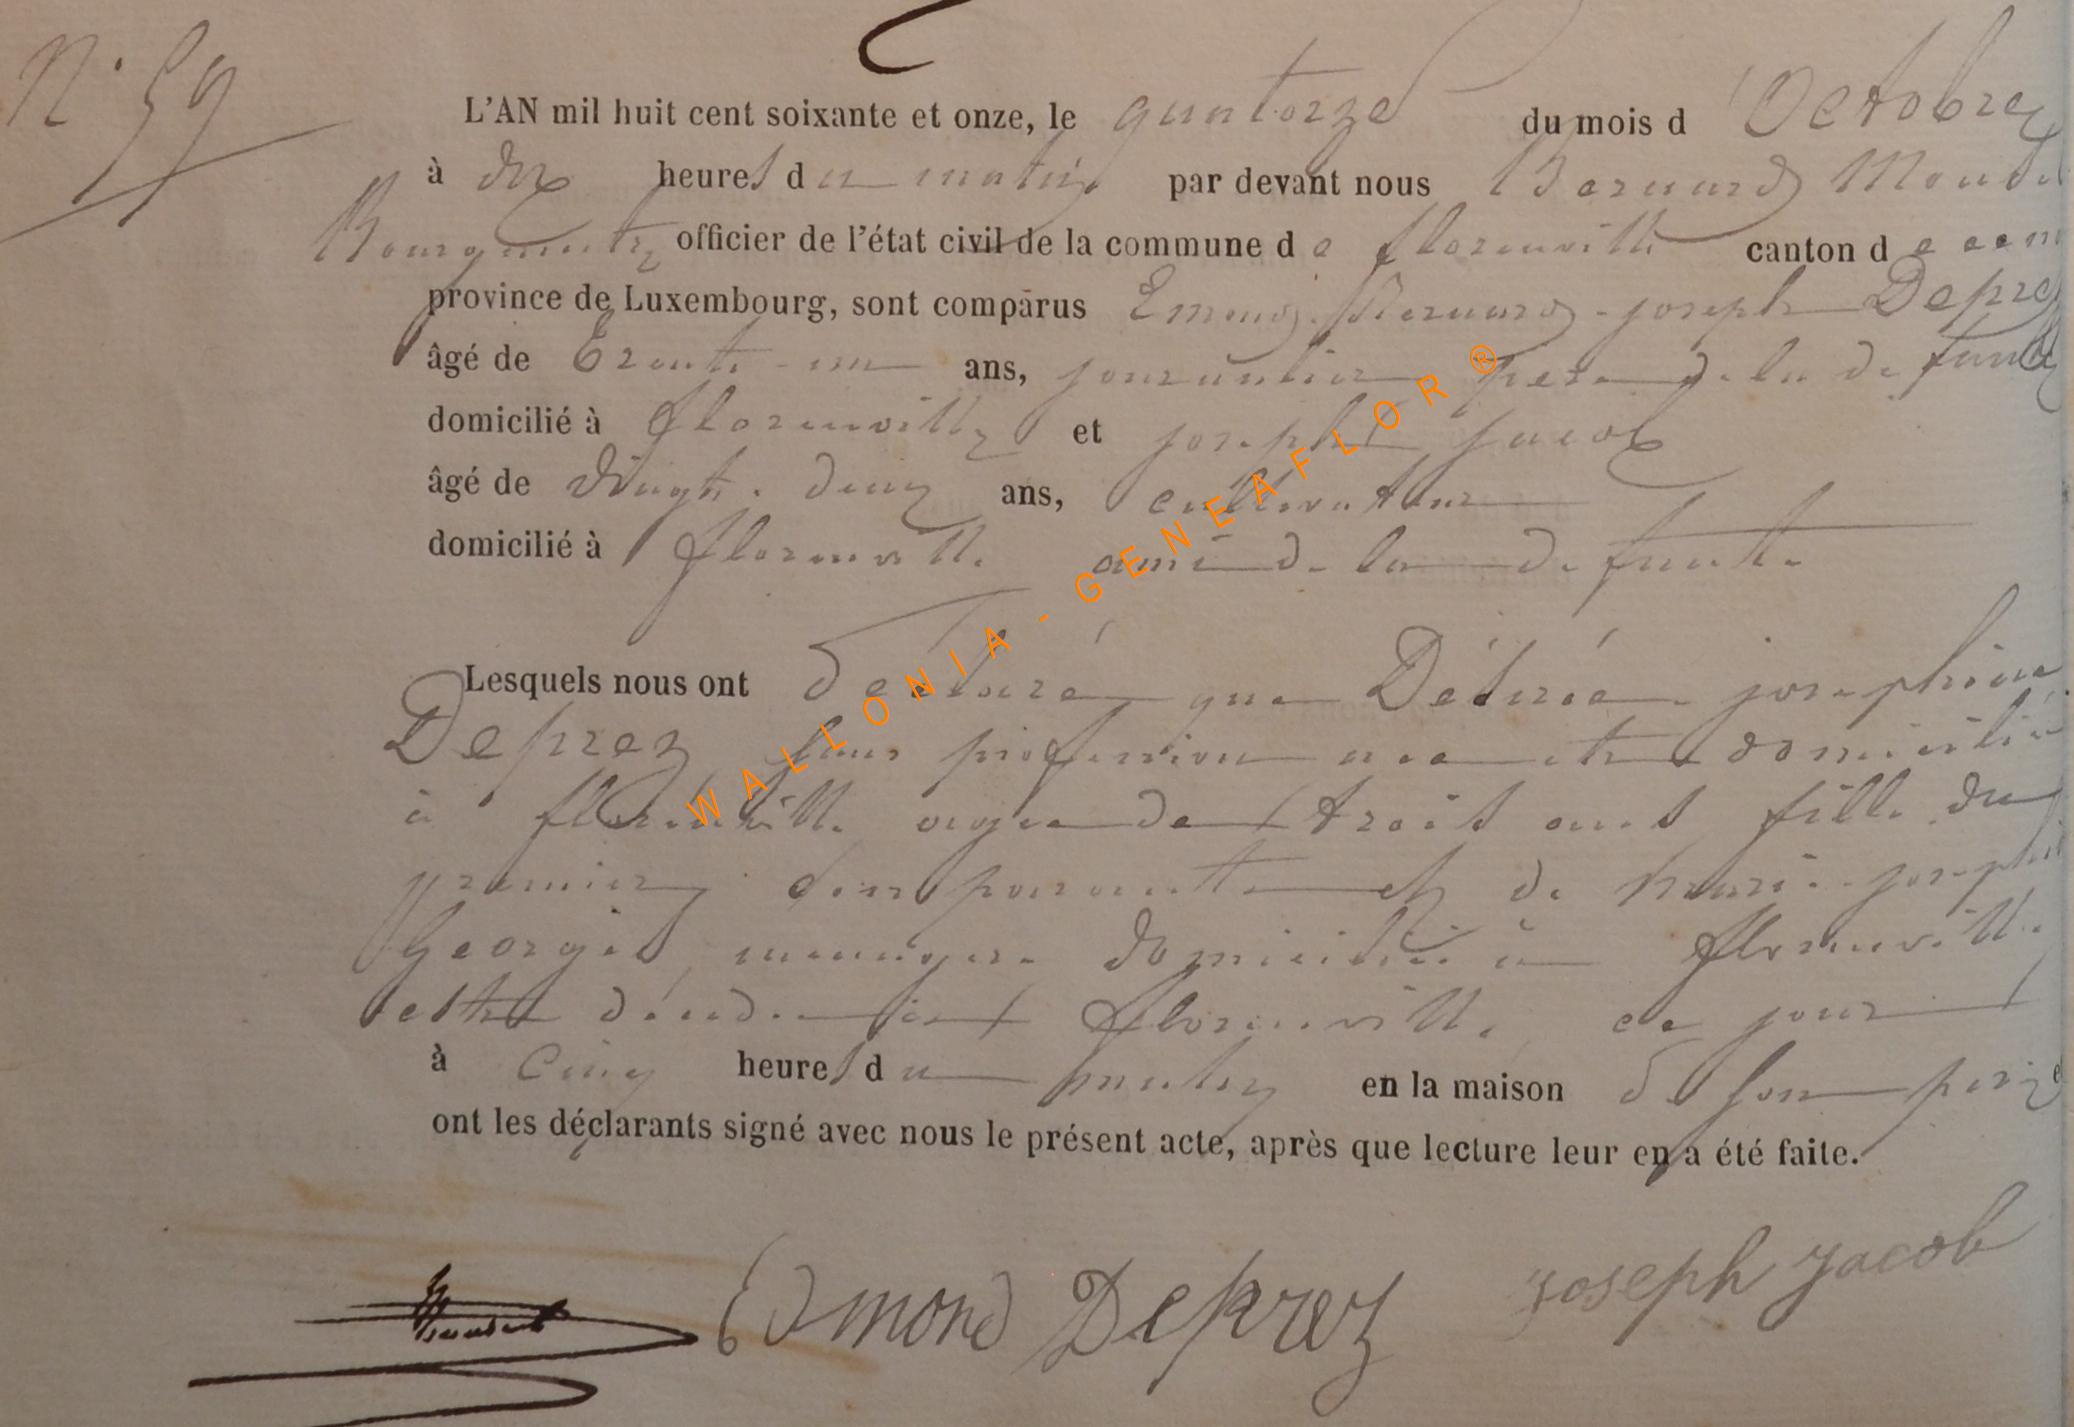 N° 59
L'AN mil huit cent soixante et onze, le quatorze du mois d Octobre
à dix heures du matin par devant nous Bernard
Bourgmestre officier de l'état civil de la commune de florenville canton de
province de Luxembourg, sont comparus Emond Bernard joseph Deprez
âgé de trente-un ans, journalier père de la defunte
domicilié à florenville et joseph jacob
âgé de vingt-deux ans, cultivateur
domicilié à florenville ami de la defunte
Lesquels nous ont déclaré que Désirée josephine
Deprez sans profession née et domiciliée
à florenville agée de trois ans fille du
premier comparant et de joseph
Georges menagere domiciliée à florenville
est décédée à florenville ce jour
à cinq heures du matin en la maison de son père
ont les déclarants signé avec nous le présent acte, après que lecture leur en a été faite.
Edmond Deprez joseph jacob
WALLONIA - GENEAFLOR ®